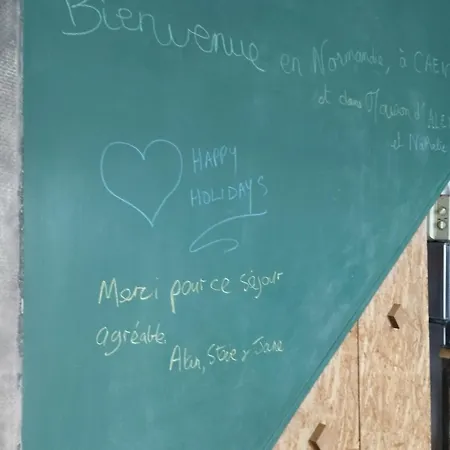 Bienvenue en Normandie, à CAEN
et dans Maison d'
et Nathalie
HAPPY
HOLIDAYS
Merci pour ce séjour
agréable.
Alan, Steve & Jane